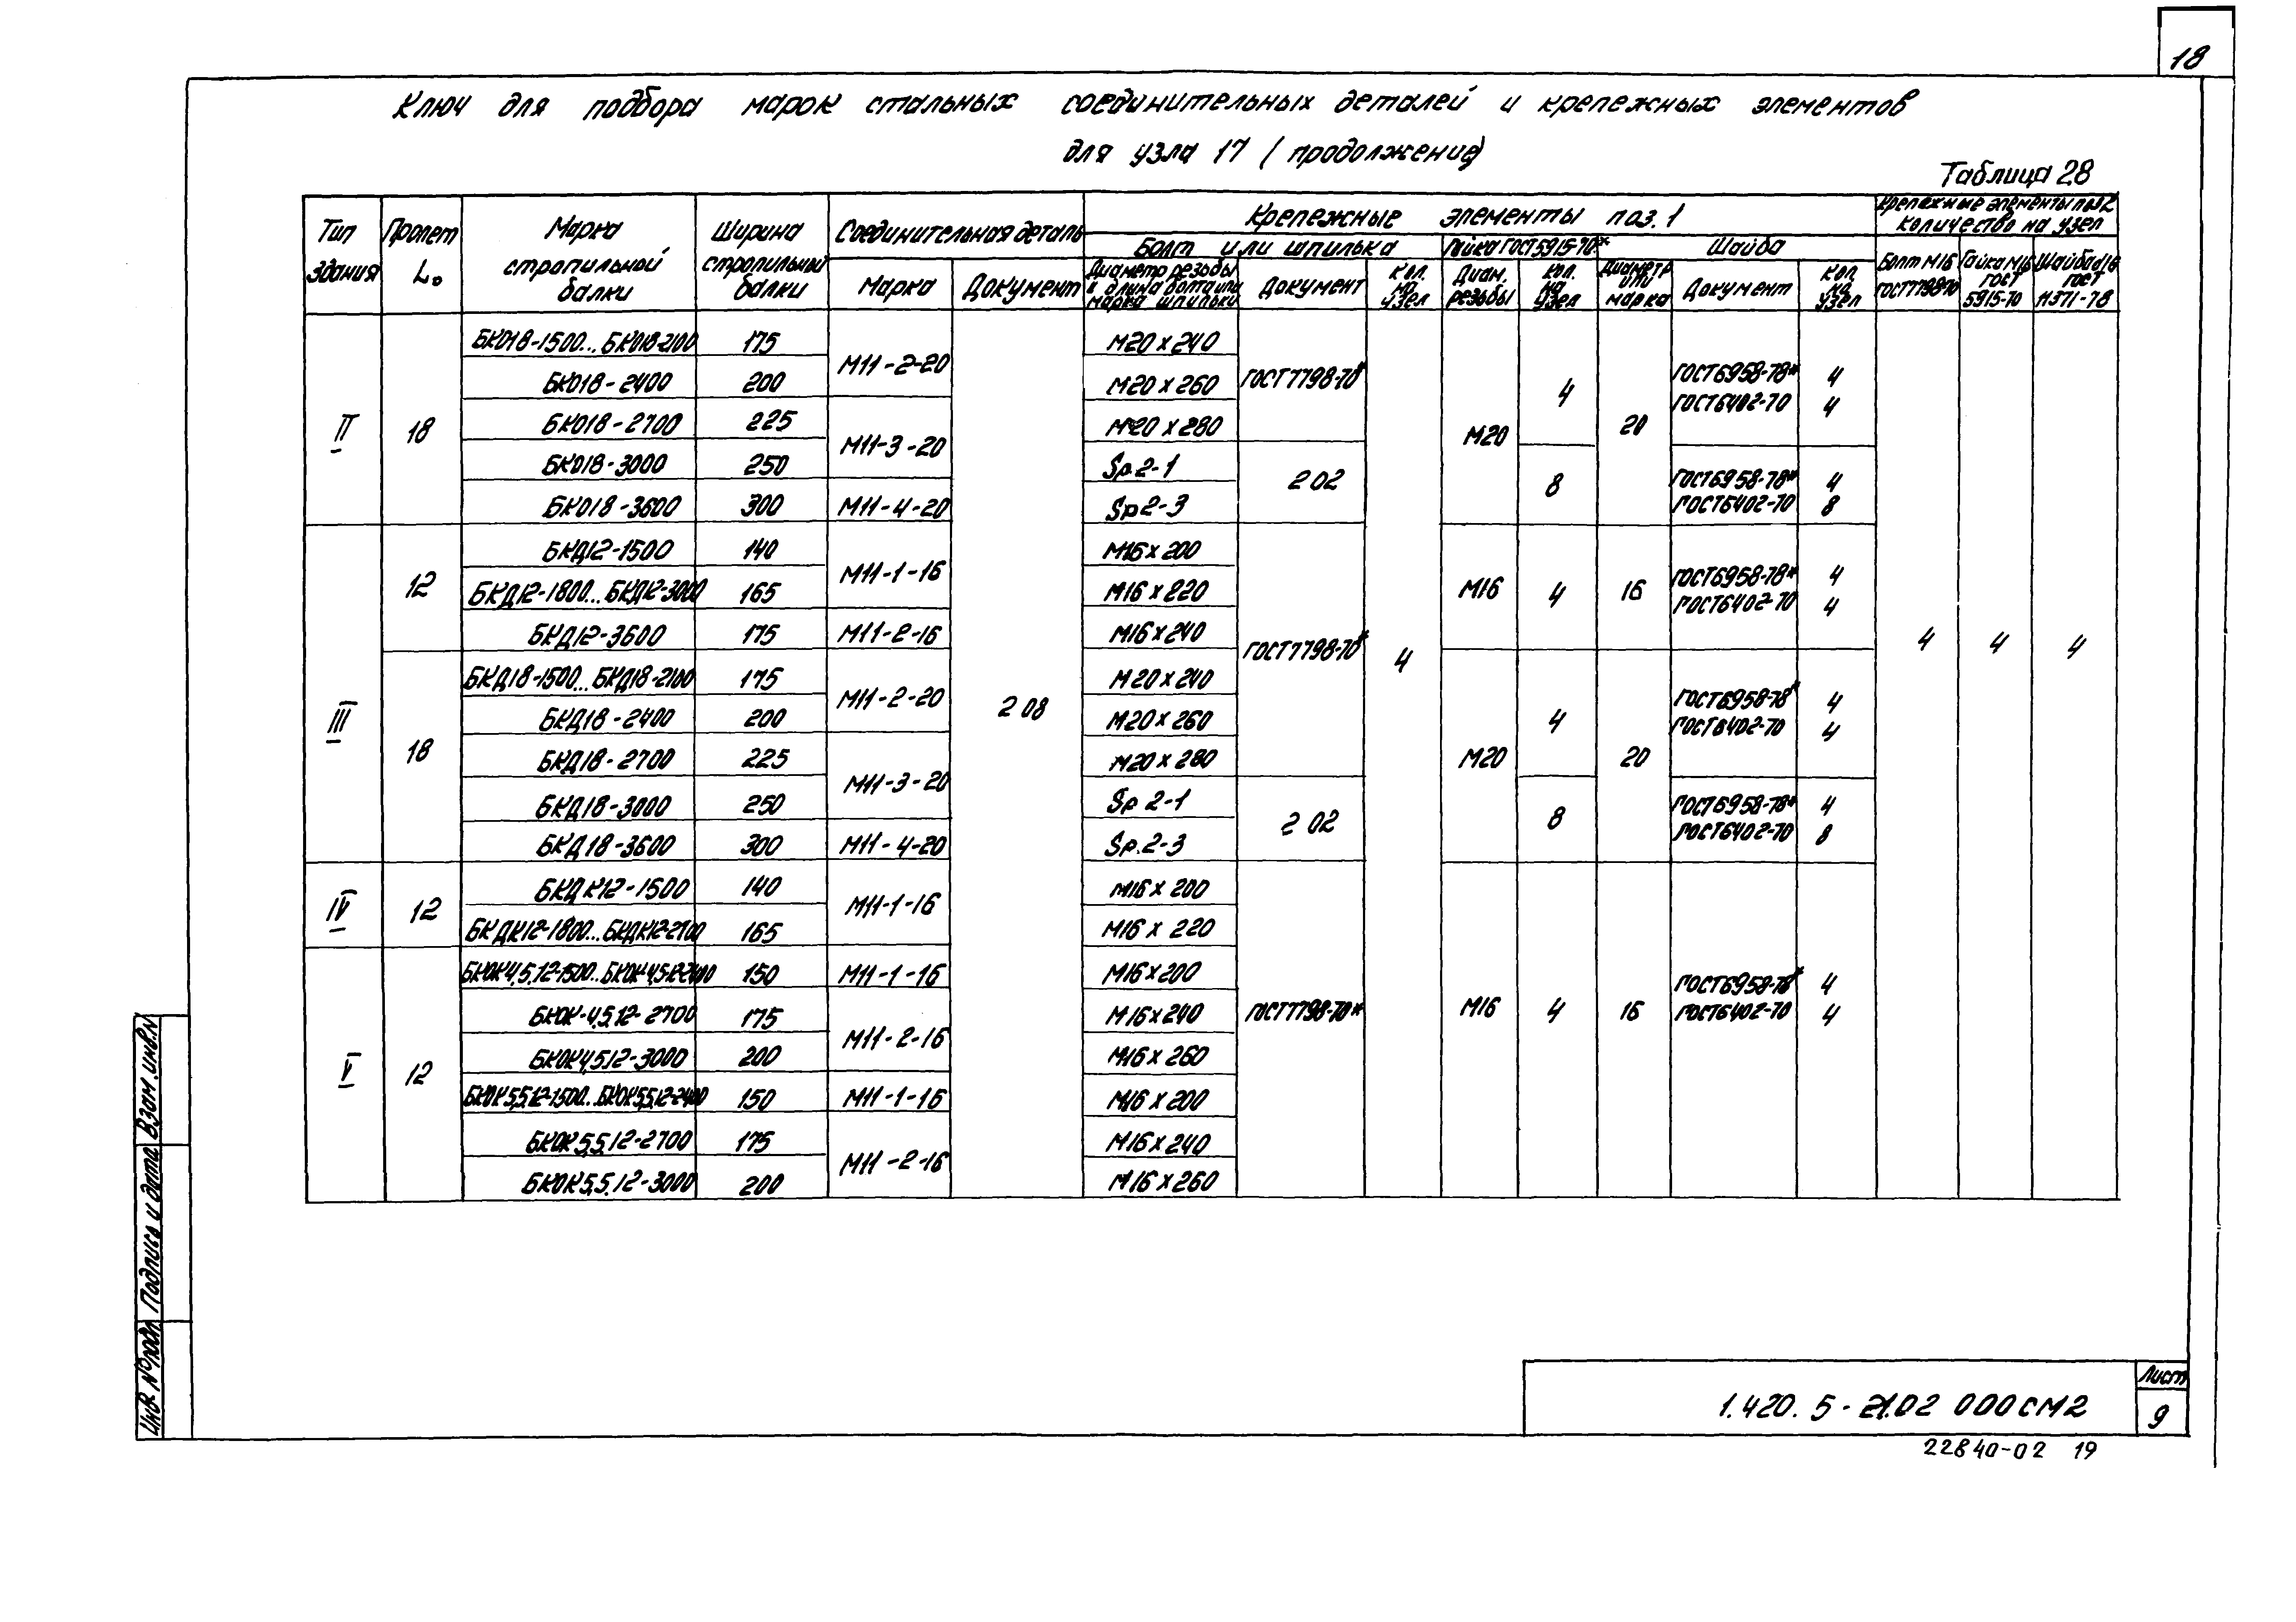 18
Ключ для подбора марок стальных соединительных деталей и крепежных элементов
для узла 17 (продолжение)
Таблица 28
Тип здания | Пролет L₀ | Марка стропильной балки | Ширина стропильной балки | Соединительная деталь | Крепежные элементы поз. 1 | Крепежные элементы поз 2 количество на узел
Болт или шпилька | Гайка ГОСТ 5915-70* | Шайба
Марка | Документ | Диаметр резьбы и длина болта или марка шпильки | Документ | Кол. на узел | Диам. резьбы | Кол. на узел | Диаметр или марка | Документ | Кол. на узел | Болт М16 ГОСТ7798-70 | Гайка М16 ГОСТ 5915-70 | Шайба 16 ГОСТ 11371-78
II | 18 | БКО18-1500...БКО18-2100 | 175 | М11-2-20 | 2 08 | М20 х 240 | ГОСТ7798-70* | 4 | М20 | 4 | 20 | ГОСТ6958-78* | 4 | 4 | 4 | 4
БКО18-2400 | 200 | М20 х 260 | ГОСТ6402-70 | 4
БКО18-2700 | 225 | М11-3-20 | М20 х 280
БКО18-3000 | 250 | Sp.2-1 | 2 02 | 8 | ГОСТ6958-78* | 4
БКО18-3600 | 300 | М11-4-20 | Sp 2-3 | ГОСТ6402-70 | 8
III | 12 | БКД12-1500 | 140 | М11-1-16 | М16 х 200 | ГОСТ7798-70* | М16 | 4 | 16 | ГОСТ6958-78* | 4
БКД12-1800...БКД12-3000 | 165 | М16 х 220 | ГОСТ6402-70 | 4
БКД12-3600 | 175 | М11-2-16 | М16 х 240
18 | БКД18-1500...БКД18-2100 | 175 | М11-2-20 | М20 х 240 | М20 | 4 | 20 | ГОСТ6958-78* | 4
БКД18-2400 | 200 | М20 х 260 | ГОСТ6402-70 | 4
БКД18-2700 | 225 | М11-3-20 | М20 х 280
БКД18-3000 | 250 | Sp 2-1 | 2 02 | 8 | ГОСТ6958-78* | 4
БКД18-3600 | 300 | М11-4-20 | Sp.2-3 | ГОСТ6402-70 | 8
IV | 12 | БКДК12-1500 | 140 | М11-1-16 | М16 х 200 | ГОСТ7798-70* | М16 | 4 | 16 | ГОСТ6958-78* | 4
БКДК12-1800...БКДК12-2700 | 165 | М16 х 220 | ГОСТ6402-70 | 4
V | 12 | БКОК4,5.12-1500...БКОК4,5.12-2400 | 150 | М11-1-16 | М16 х 200
БКОК-4,5.12-2700 | 175 | М11-2-16 | М16 х 240
БКОК4,5.12-3000 | 200 | М16 х 260
БКОК5,5.12-1500...БКОК5,5.12-2400 | 150 | М11-1-16 | М16 х 200
БКОК5,5.12-2700 | 175 | М11-2-16 | М16 х 240
БКОК5,5.12-3000 | 200 | М16 х 260
Инв. № подл. Подпись и дата Взам. инв. N
1.420.5-21.02 000СМ2
Лист
9
22840-02 19